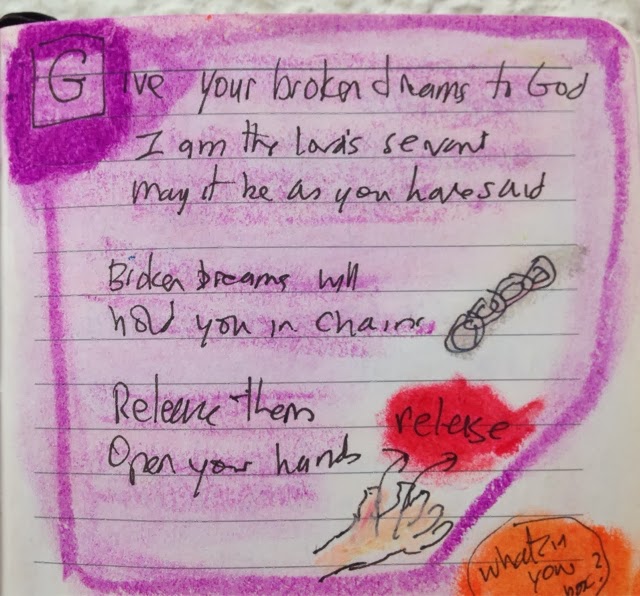 Give your broken dreams to God
I am the Lord's servant
may it be as you have said
Broken Dreams will
hold you in Chains.
Release them
release
Open your hands
what's in
your
box?